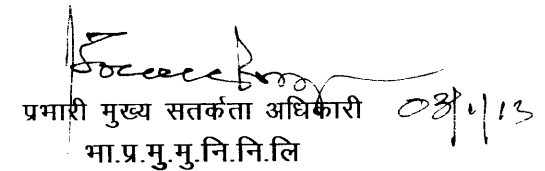 प्रभारी मुख्य सतर्कता अधिकारी 03/1/13
भा.प्र.मु.मु.नि.नि.लि